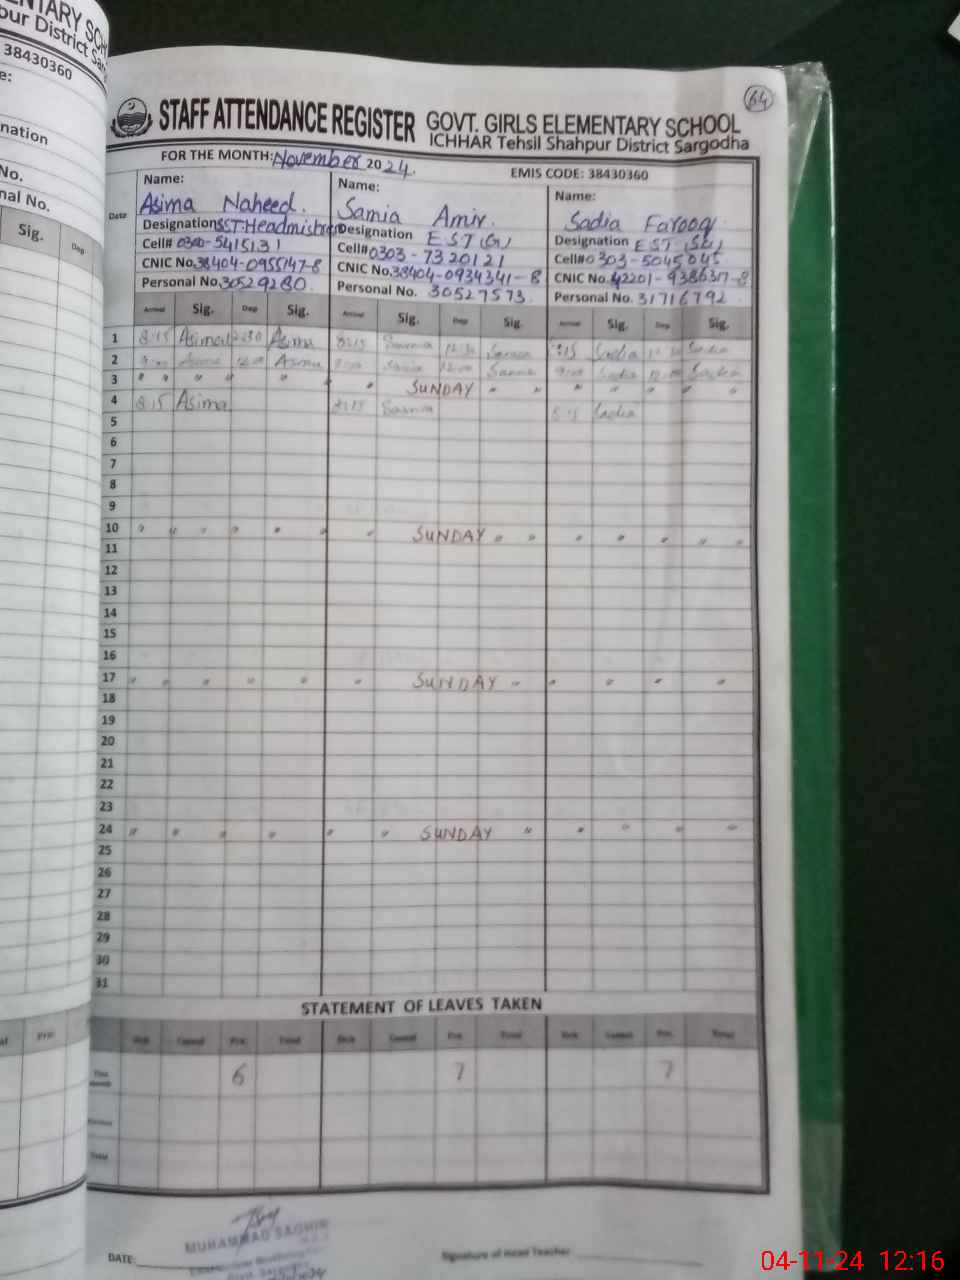 NTARY SCH
pur District Sar
38430360
e:
nation
No.
nal No.
Sig. Dep
64
STAFF ATTENDANCE REGISTER GOVT. GIRLS ELEMENTARY SCHOOL
ICHHAR Tehsil Shahpur District Sargodha
FOR THE MONTH: November 2024. EMIS CODE: 38430360
Date
Name: Name: Name:
Asima Naheed. Samia Amir. Sadia Farooq
Designation SST:Headmistress Designation EST(G) Designation EST(Sc)
Cell# 0300-5415131 Cell# 0303-7320121 Cell# 0303-5045045
CNIC No. 38404-0955147-8 CNIC No. 38404-0934341-8 CNIC No. 42201-9386317-8
Personal No. 30529280. Personal No. 30527573. Personal No. 31716792
Arrival Sig. Dep Sig. Arrival Sig. Dep Sig. Arrival Sig. Dep Sig.
1 8:15 Asima 12:30 Asima 8:15 Samia 12:30 Samia 8:15 Sadia 12:30 Sadia
2 9:00 Asima 12:00 Asima 9:00 Samia 12:00 Samia 9:00 Sadia 12:00 Sadia
3 " " " " " " SUNDAY " " " " " " "
4 8:15 Asima 8:15 Samia 8:15 Sadia
5
6
7
8
9
10 " " " " " " " SUNDAY " " " " " " "
11
12
13
14
15
16
17 " " " " " " SUNDAY " " " " "
18
19
20
21
22
23
24 " " " " " " SUNDAY " " " " "
25
26
27
28
29
30
31
STATEMENT OF LEAVES TAKEN
Sick Casual Prv. Total Sick Casual Prv. Total Sick Casual Prv. Total
This Month 6 7 7
Total
MUHAMMAD SAGHIR
DATE: Signature of Head Teacher
04-11-24 12:16